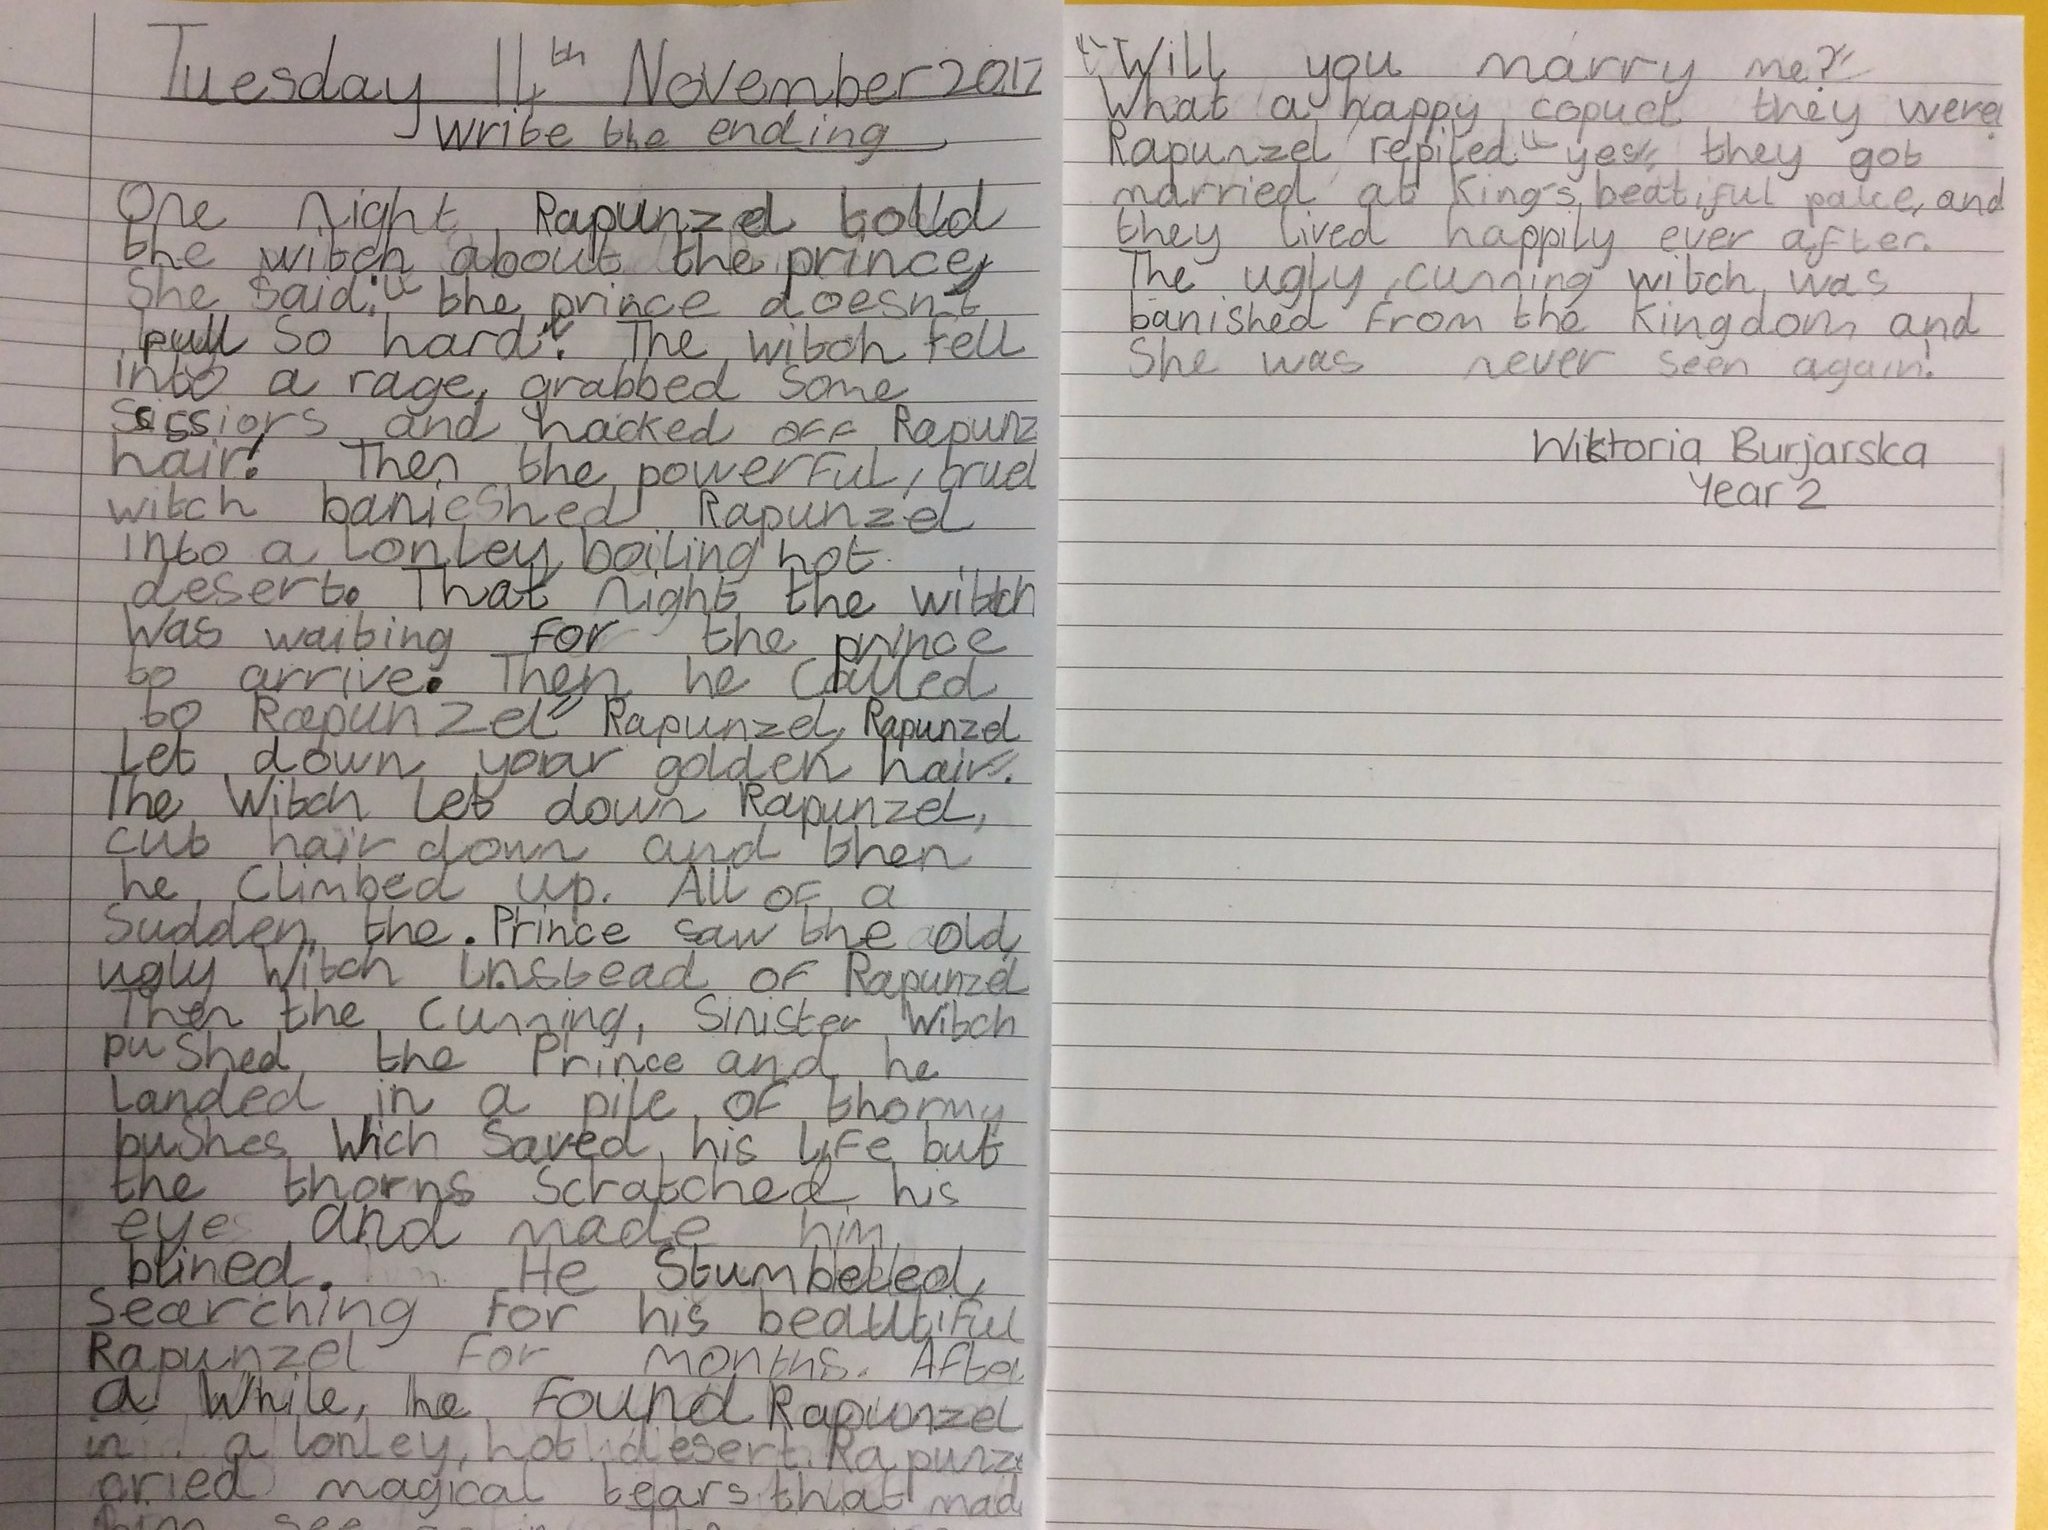 Tuesday 14th November 2017
Write the ending
One night Rapunzel tolld
the witch about the prince,
She said: "the prince doesn't
pull so hard". The witch fell
into a rage, grabbed some
sissiors and hacked off Rapunz
hair! Then the powerful, cruel
witch banieshed Rapunzel
into a lonley, boiling hot
desert. That night the witch
was waiting for the prince
to arrive. Then he called
to Rapunzel" Rapunzel, Rapunzel
let down your golden hair".
The Witch let down Rapunzel,
cut hair down and then
he climbed up. All of a
Sudden the Prince saw the old,
ugly Witch instead of Rapunzel
Then the cunning, Sinister Witch
pushed the Prince and he
landed in a pile of thorny
bushes Wich saved his life but
the thorns scratched his
eyes and made him
blined. He stumbeled,
Searching for his beautiful
Rapunzel for months. After
a while, he found Rapunzel
in a lonley, hot desert. Rapunze
cried magical tears that mad
him see
"Will you marry me?"
What a happy copuel they were!
Rapunzel repiled "yes" they got
married at King's beatiful palce, and
they lived happily ever after.
The ugly, cunning witch was
banished from the kingdom and
She was never seen again!
Wiktoria Burjarska
Year 2